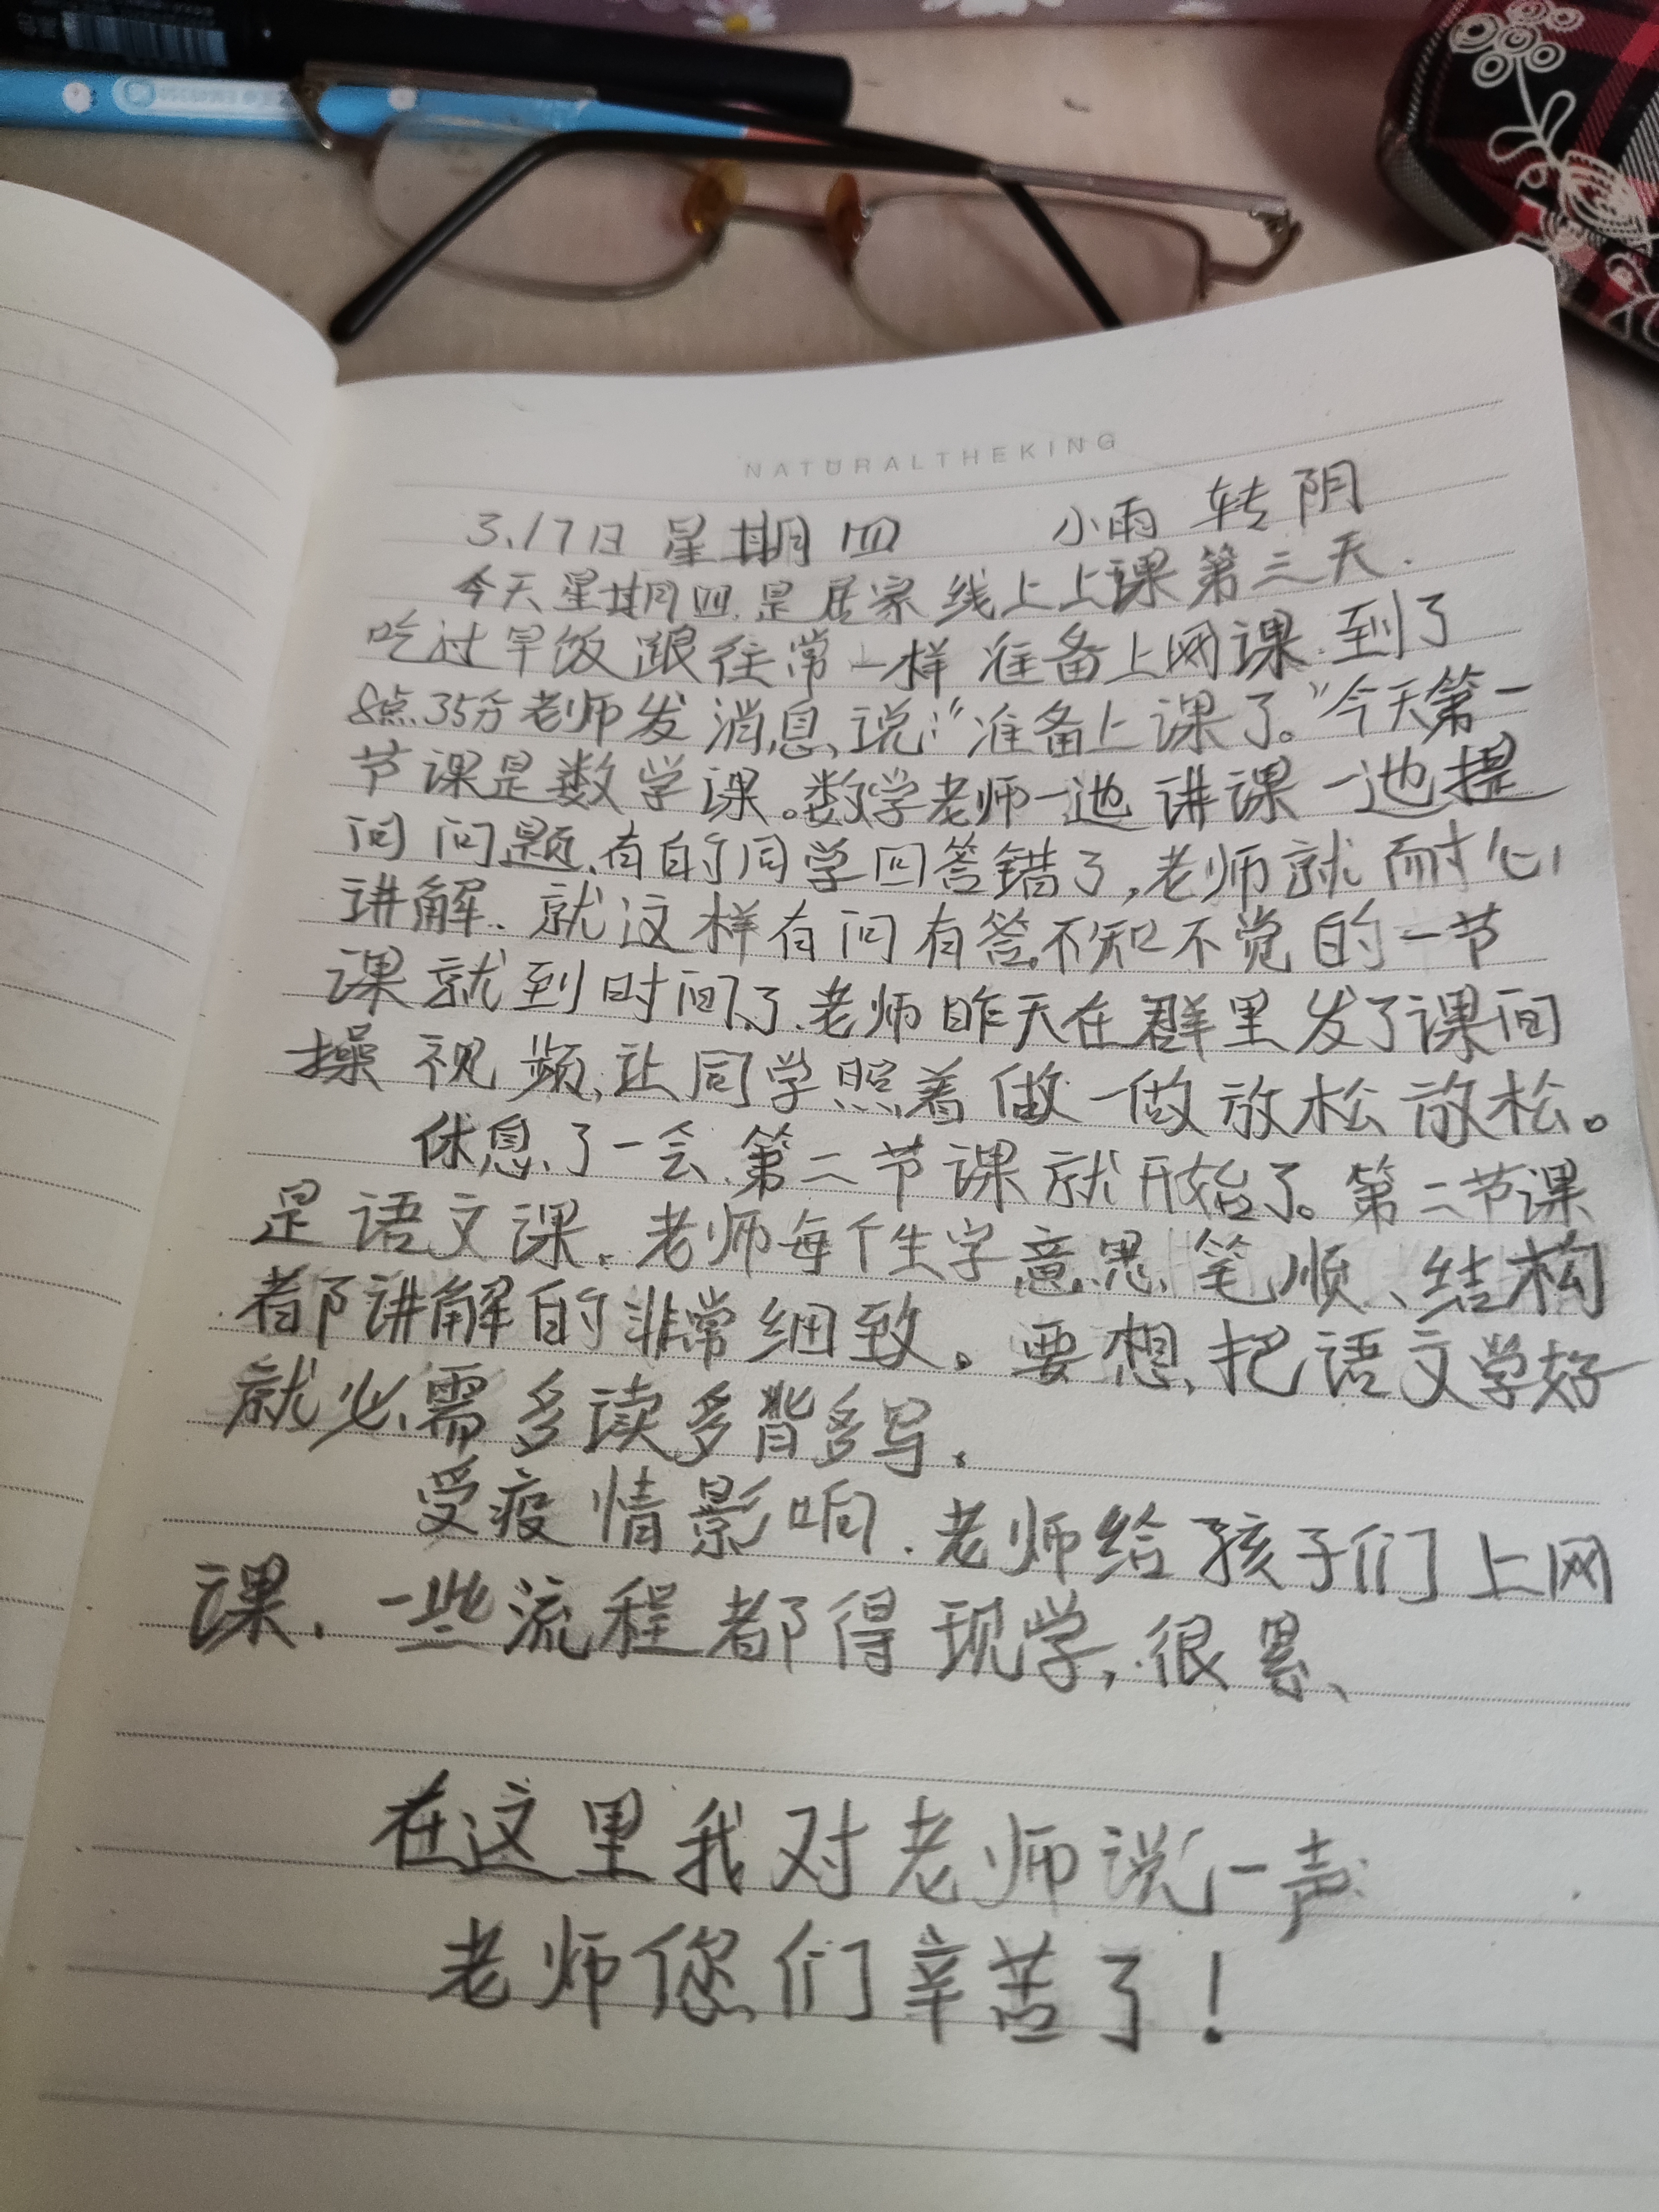 NATURALTHEKING
3、17日 星期四 小雨 转 阴
今天星期四、是居家线上上课第三天.
吃过早饭跟往常一样 准备上网课.到了
8点35分老师发消息、说:“准备上课了。”今天第一
节课是数学课。数学老师一边讲课一边提
问问题、有的同学回答错了,老师就耐心
讲解、就这样有问有答、不知不觉的一节
课就到时间了、老师昨天在群里发了课间
操视频、让同学照着做一做放松放松。
休息了一会、第二节课就开始了。第二节课
是语文课、老师每个生字意思、笔顺、结构
都讲解的非常细致。要想把语文学好
就必需多读多背多写.
受疫情影响.老师给孩子们上网
课、一些流程都得现学,很累、
在这里我对老师说一声
老师您们辛苦了!